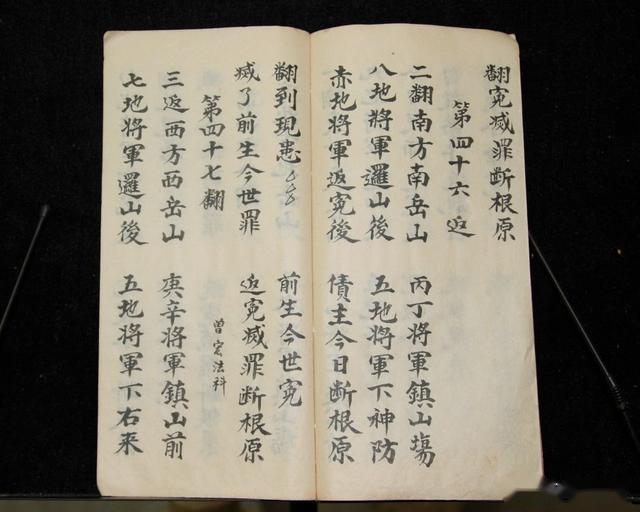 翻宽滅罪断根原
第四十六返
二翻南方南岳山 丙丁將軍鎮山塲
八地將軍邏山後 五地將軍下神防
赤地將軍返冤後 債主今日断根原
翻到現患 前生今世冤
滅了前生今世罪 返冤滅罪断根原
第四十七翻 曾宏法科
三返西方西岳山 庚辛將軍鎮山前
七地將軍邏山後 五地将軍下右来